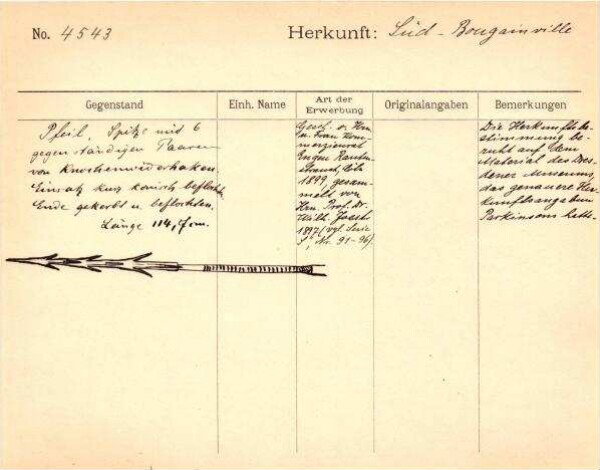 No. 4543
Herkunft: Süd-Bougainville
Gegenstand
Einh. Name
Art der
Erwerbung
Originalangaben
Bemerkungen
Pfeil, Spitze mit 6
gegenständigen Paaren
von Knochenwiederhaken.
Einsatz kurz konisch beflochten
Ende gekerbt u. beflochten.
Länge 114, cm.
Gesch. v. Hrn
u. Frau Kom-
merzienrat
Eugen Rauten-
strauch, Cöln
1899, gesam-
melt von
Hrn. Prof. Dr.
Wilh. Joest
1897 (vgl. Serie
Nr. 91-96).
Die Herkunftsbe-
stimmung be-
ruht auf dem
Material des Dres-
dener Museums,
das genauere Her-
kunftsangaben
Parkinsons hatte.